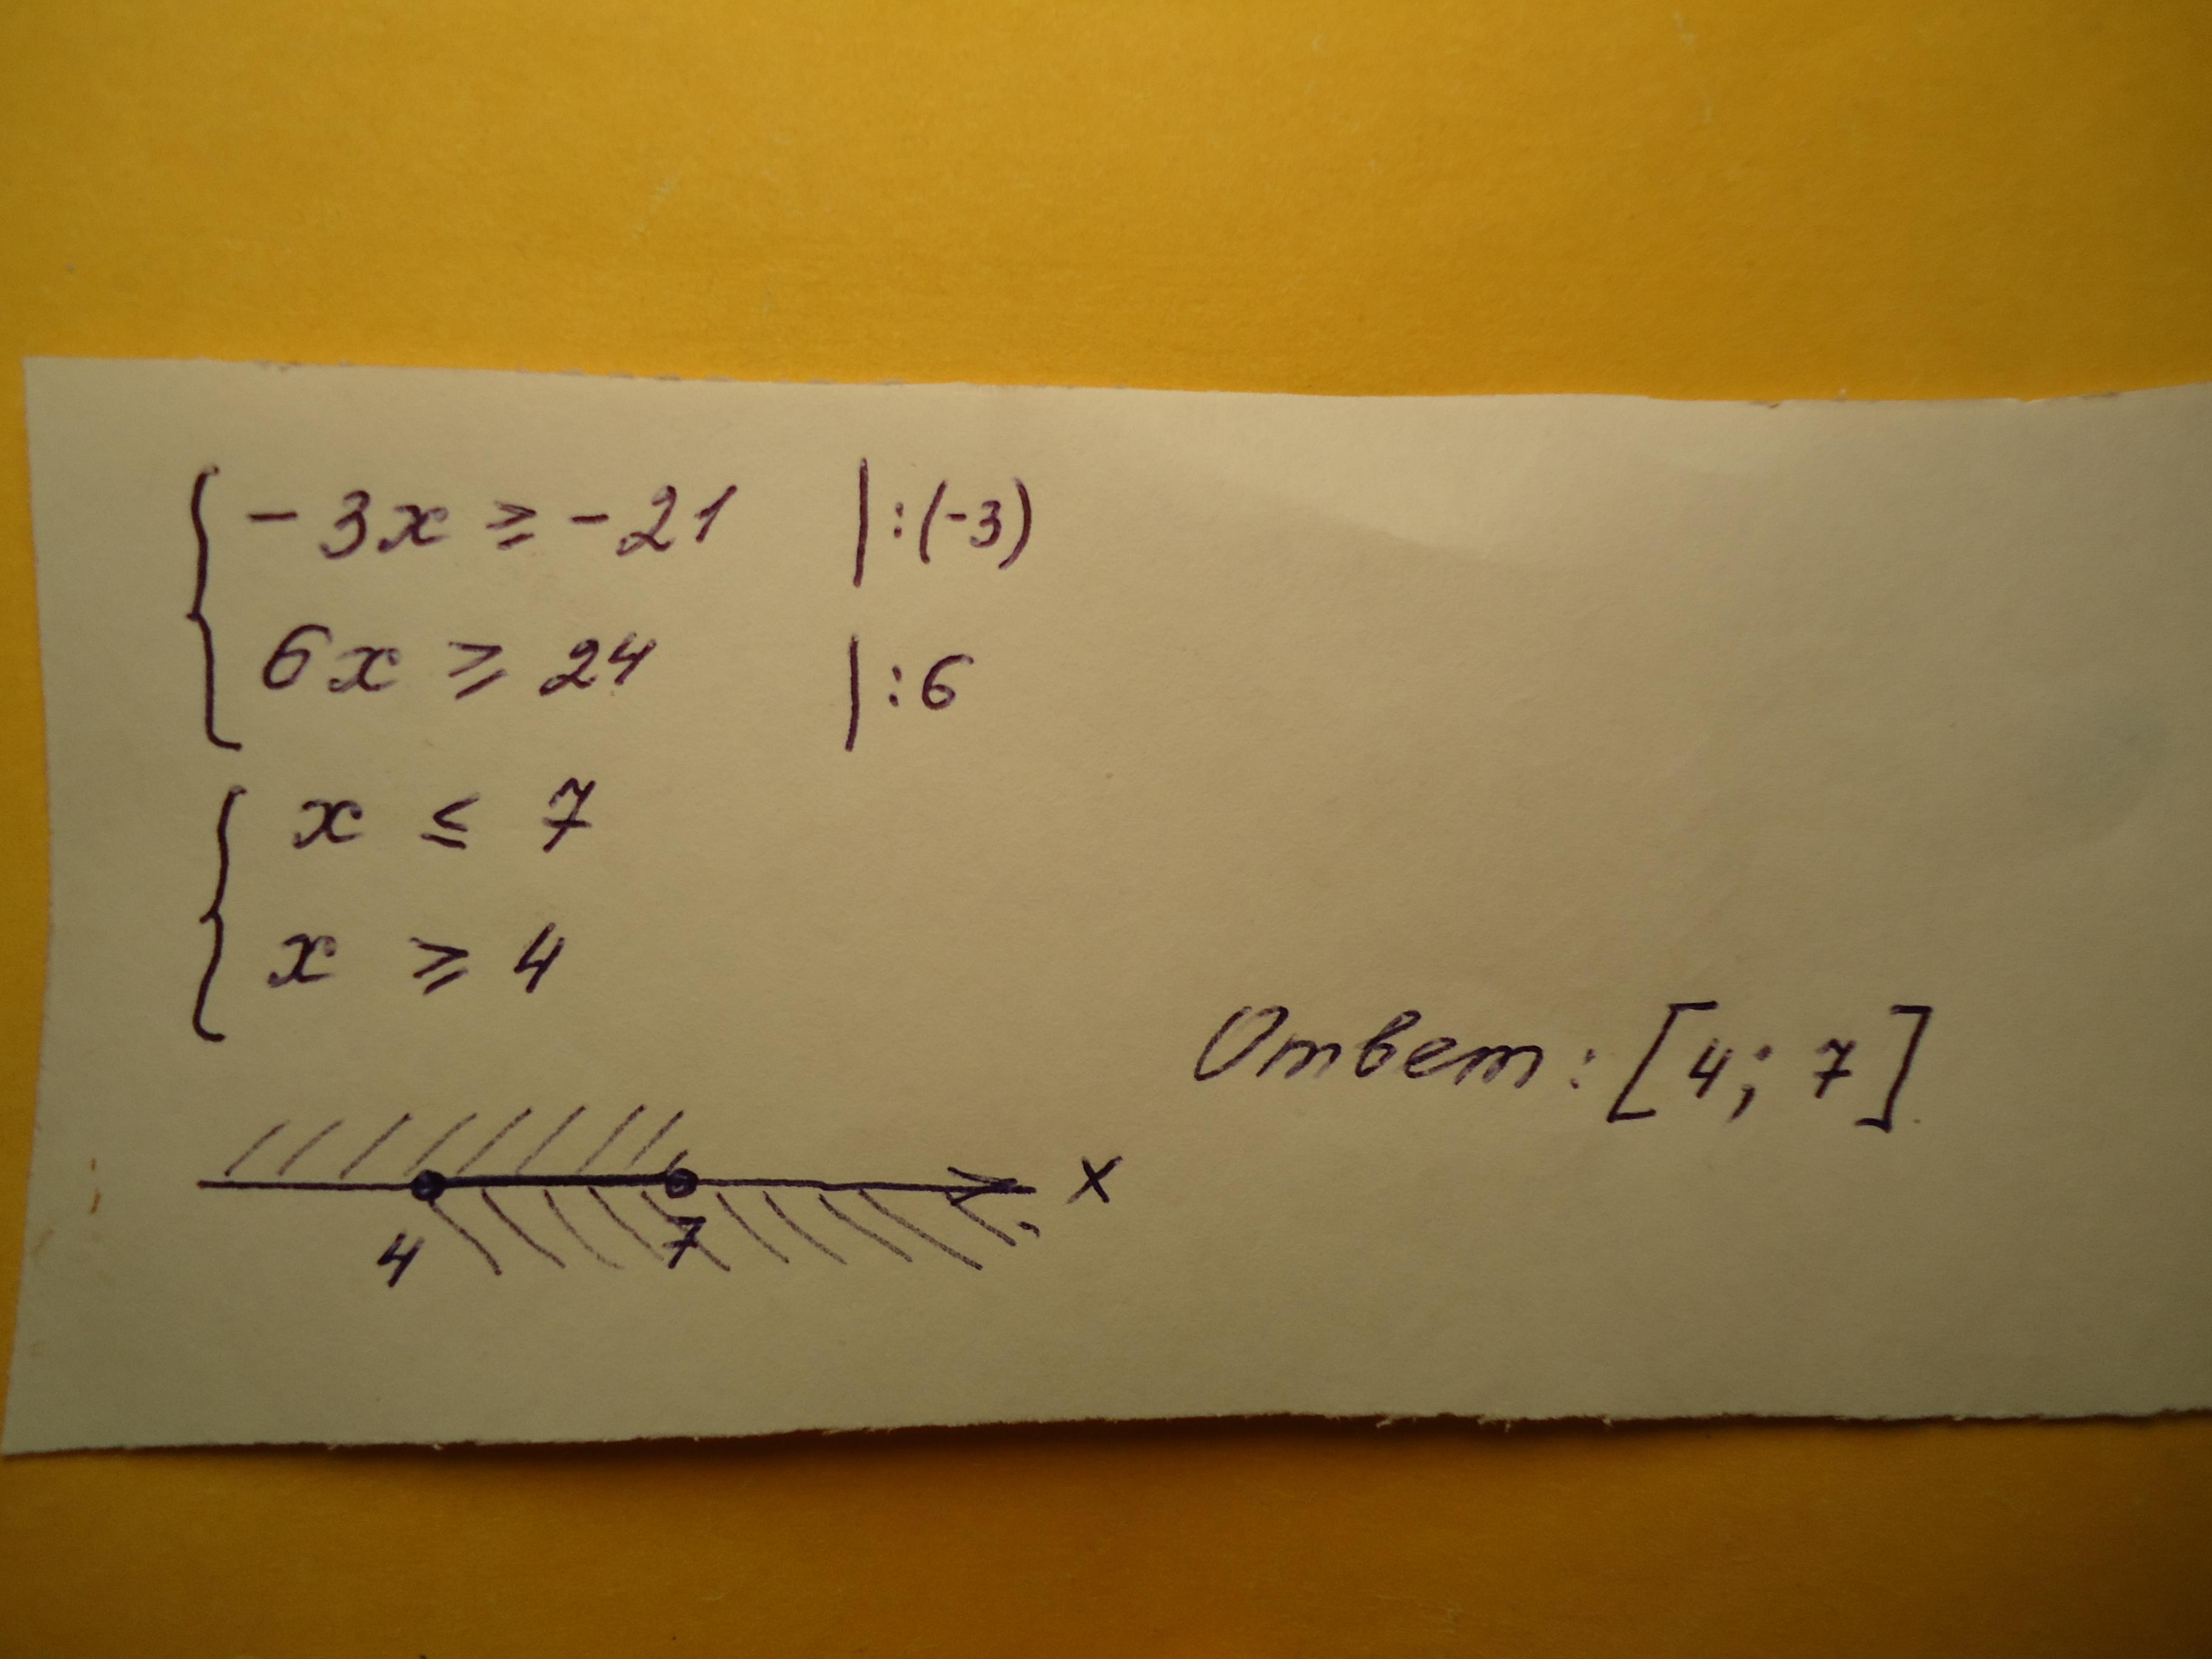 -3x ≥ -21 |:(-3)
6x ≥ 24 |:6
x ≤ 7
x ≥ 4
Ответ: [4; 7]
x
4 7